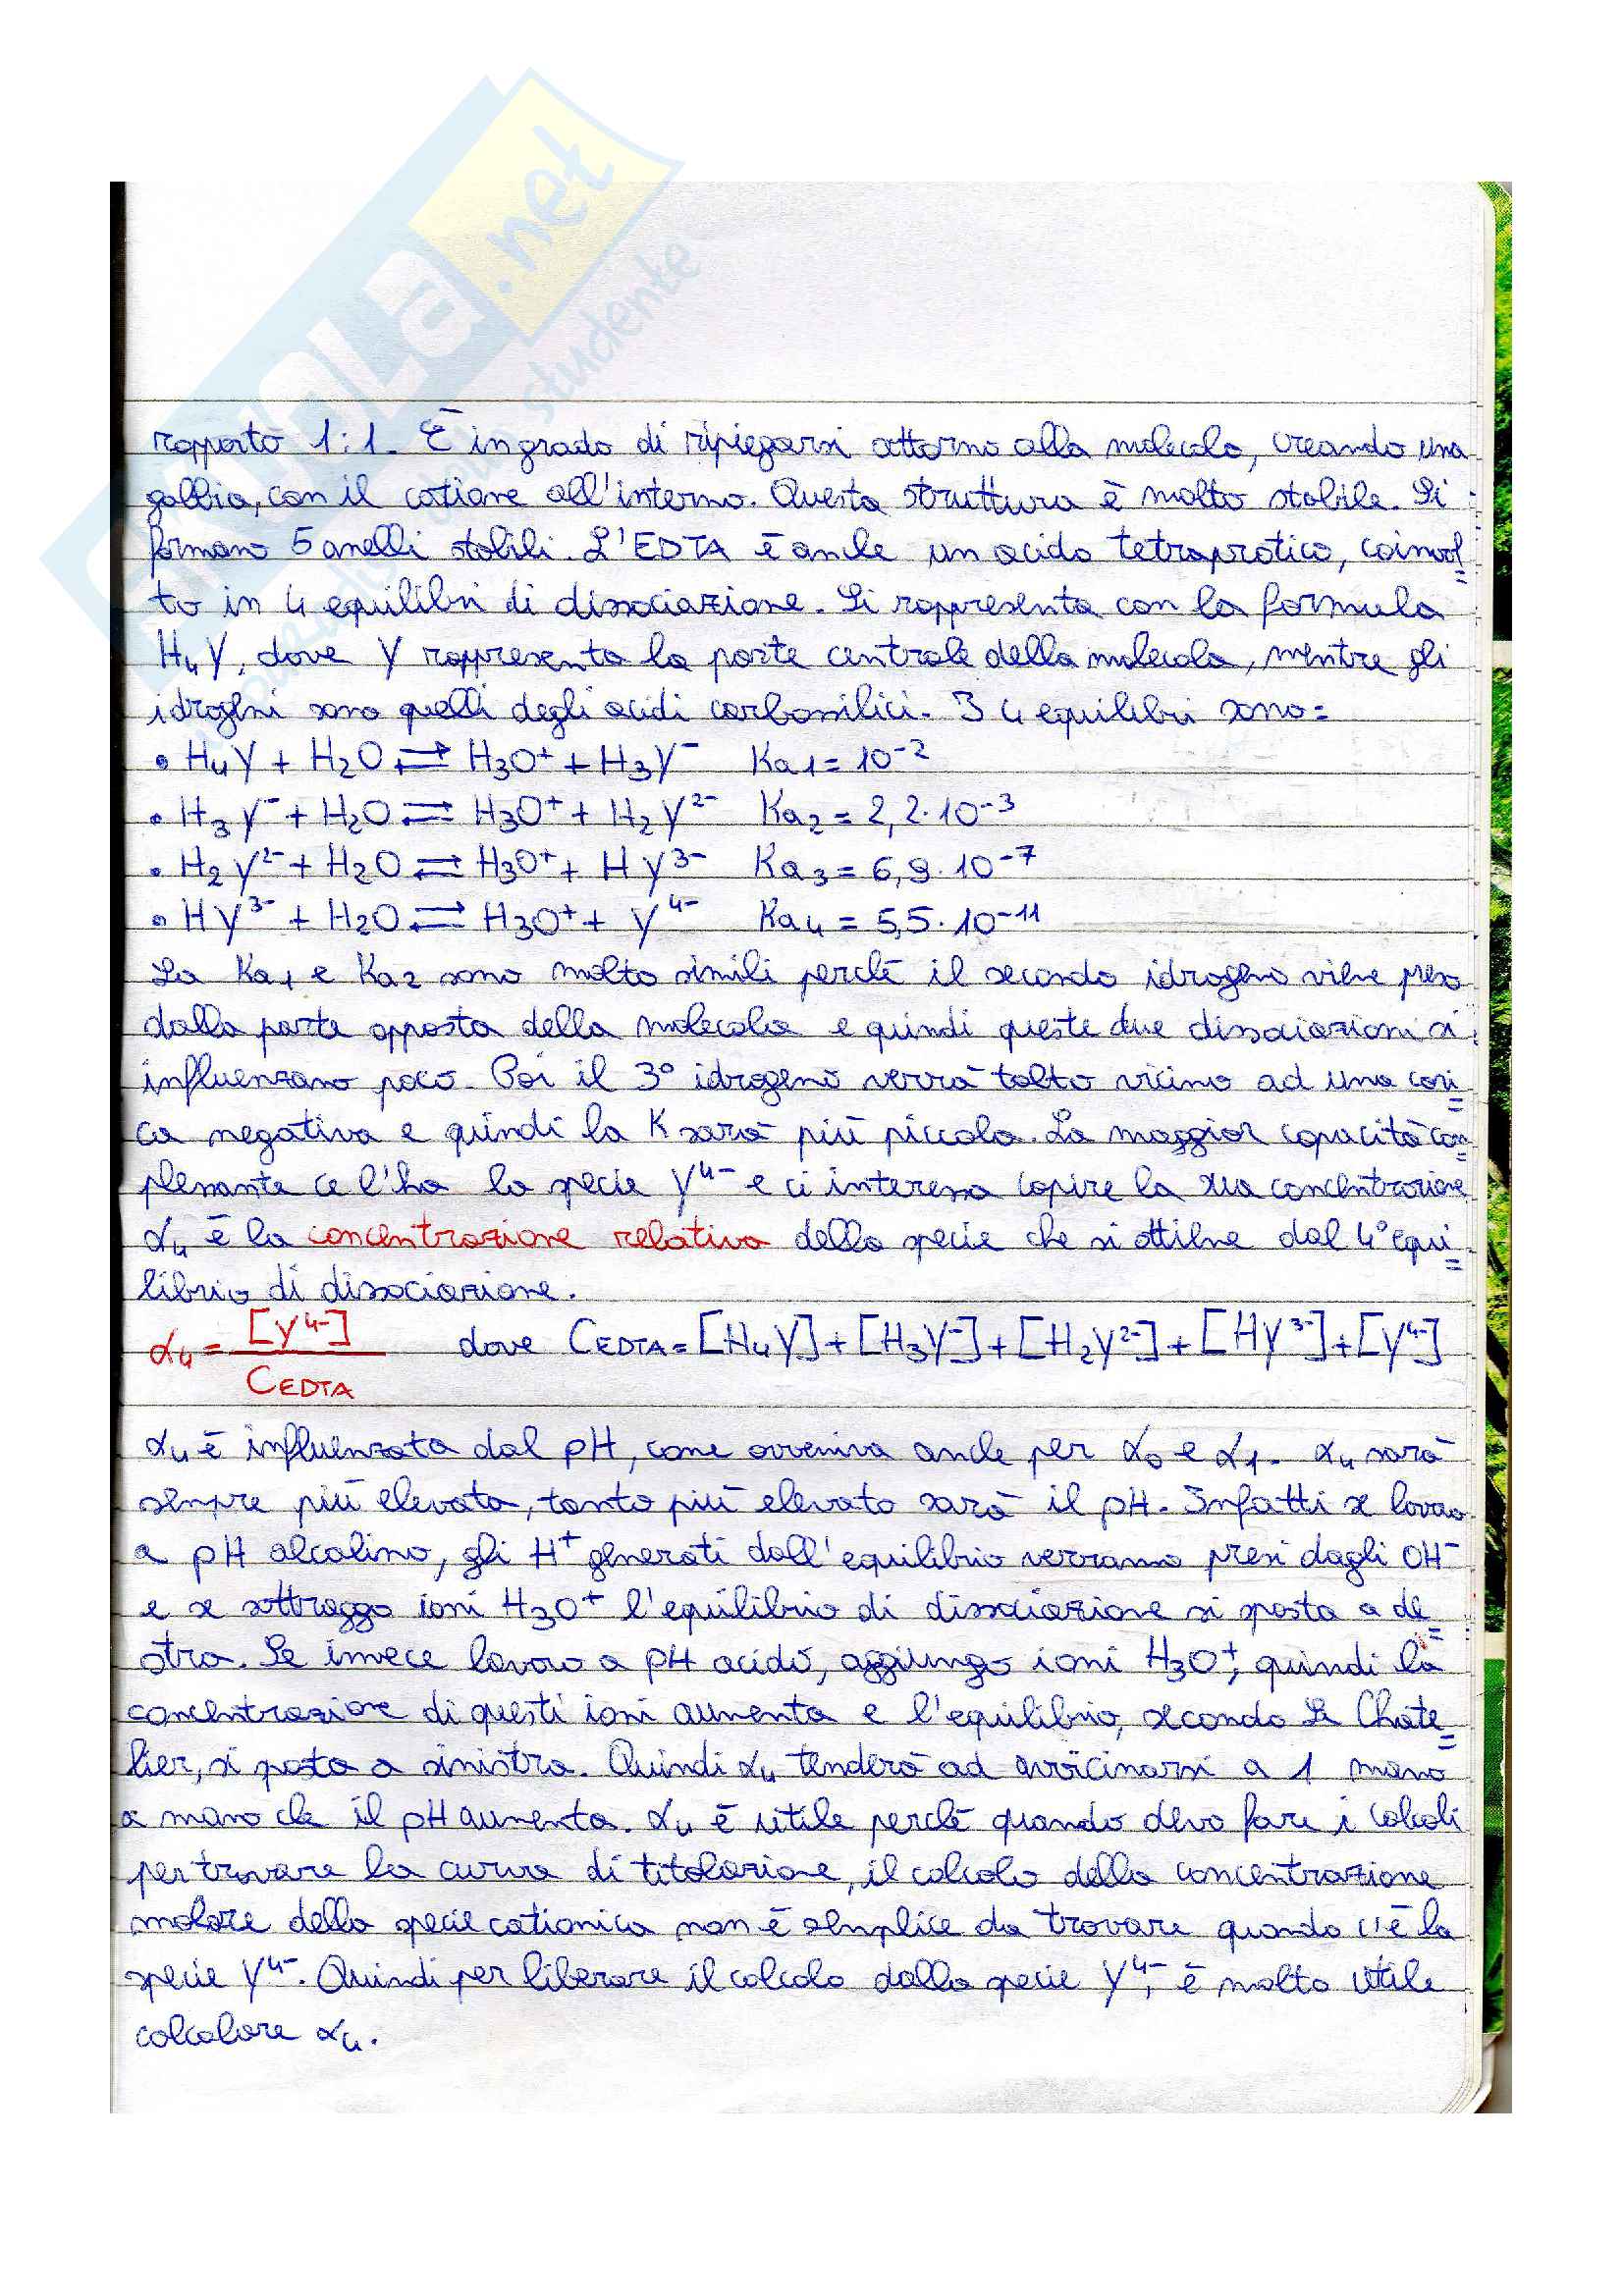 .net
studente
rapporto 1:1. È in grado di ripiegarsi attorno alla molecola, creando una
gabbia, con il catione all'interno. Questa struttura è molto stabile. Si
formano 5 anelli stabili. L'EDTA è anche un acido tetraprotico, coinvol=
to in 4 equilibri di dissociazione. Si rappresenta con la formula
H₄Y, dove Y rappresenta la parte centrale della molecola, mentre gli
idrogeni sono quelli degli acidi carbossilici. I 4 equilibri sono:
• H₄Y + H₂O ⇌ H₃O⁺ + H₃Y⁻ Ka₁ = 10⁻²
• H₃Y⁻ + H₂O ⇌ H₃O⁺ + H₂Y²⁻ Ka₂ = 2,2·10⁻³
• H₂Y²⁻ + H₂O ⇌ H₃O⁺ + HY³⁻ Ka₃ = 6,9·10⁻⁷
• HY³⁻ + H₂O ⇌ H₃O⁺ + Y⁴⁻ Ka₄ = 5,5·10⁻¹¹
La Ka₁ e Ka₂ sono molto simili perchè il secondo idrogeno viene preso
dalla parte opposta della molecola e quindi queste due dissociazioni si
influenzano poco. Poi il 3° idrogeno verrà tolto vicino ad una cari=
ca negativa e quindi la K sarà più piccola. La maggior capacità com=
plessante ce l'ha la specie Y⁴⁻ e ci interessa capire la sua concentrazione
α₄ è la concentrazione relativa della specie che si ottiene dal 4° equi=
librio di dissociazione.
α₄ = [Y⁴⁻] / CEDTA dove CEDTA = [H₄Y] + [H₃Y⁻] + [H₂Y²⁻] + [HY³⁻] + [Y⁴⁻]
α₄ è influenzata dal pH, come avveniva anche per α₀ e α₁. α₄ sarà
sempre più elevata, tanto più elevato sarà il pH. Infatti se lavoro
a pH alcalino, gli H⁺ generati dall'equilibrio verranno presi dagli OH⁻
e se sottraggo ioni H₃O⁺ l'equilibrio di dissociazione si sposta a de=
stra. Se invece lavoro a pH acido, aggiungo ioni H₃O⁺, quindi la
concentrazione di questi ioni aumenta e l'equilibrio, secondo Le Chate=
lier, si sposta a sinistra. Quindi α₄ tenderà ad avvicinarsi a 1 mano
a mano che il pH aumenta. α₄ è utile perchè quando devo fare i calcoli
per trovare la curva di titolazione, il calcolo della concentrazione
molare della specie cationica non è semplice da trovare quando c'è la
specie Y⁴⁻. Quindi per liberare il calcolo dalla specie Y⁴⁻, è molto utile
calcolare α₄.